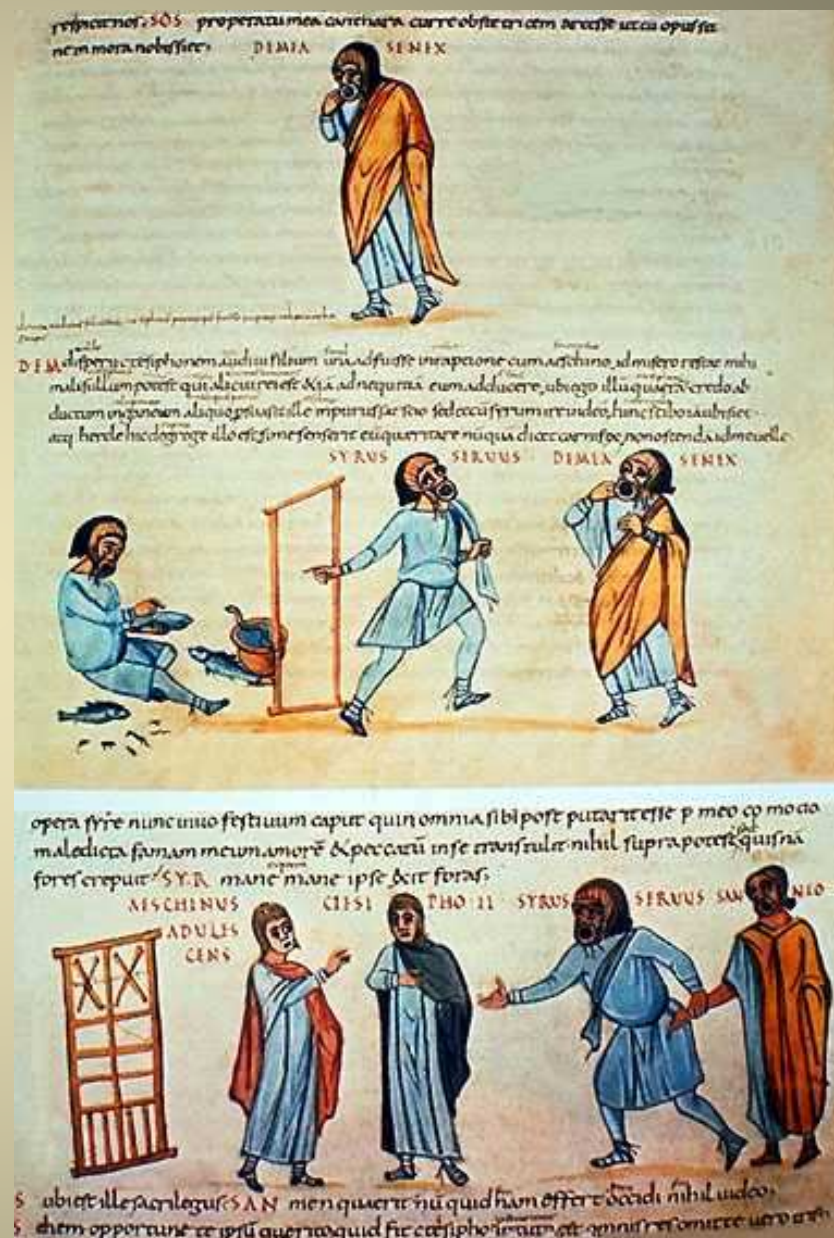 respicit nos. SOS properatu mea canthara curre obstetricem arcesse ut cu opus sit
ne in mora nobis siet.
DEMIA SENEX
DEM disperii ctesiphonem audivi filium una adfuisse in raptione cum aeschino, id misero restat mihi
mali si illum potest qui alicui rei est & iā ad nequitiā eum adducere, ubi ego illū quaerā credo ab
ductum in ganeum aliquo, persuasit ille impurus sat scio sed eccū syrum ire video, hinc scibo iā ubi siet.
atq hercle hic de grege illo est si me senserit eū quaeritare nūquā dicet carnifex, non ostendā id me velle
SYRUS SERUUS DEMEA SENEX
opera syre nunc vivo festivum caput quin omnia sibi post putarit esse p meo cōmodo
maledicta famam meum amorē & peccatū in se transtulit nihil supra potest, quisnā
fores crepuit SYR mane mane ipse exit foras.
AESCHINUS CTESI THO II SYRUS SERUUS SAN NIO
ADULES
CENS
S ubi est ille sacrilegus. SAN men quaerit nū quid nam offert occidi nihil video,
S ehem opportune te ipsū querito quid fit ctesipho in tuto est omnis res omitte vero